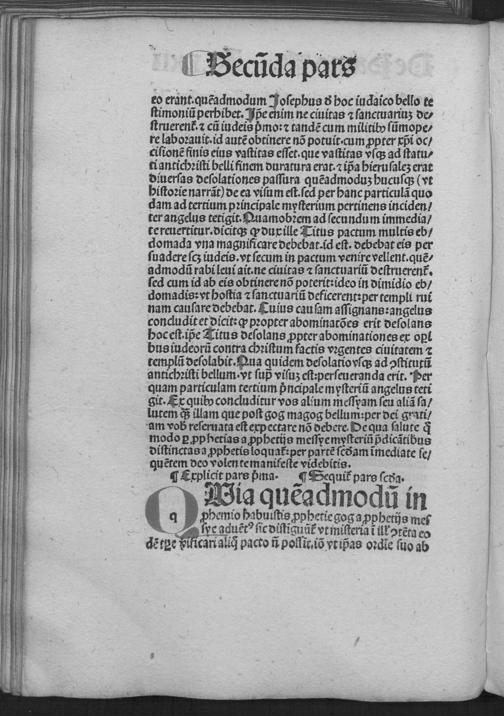 ¶ Secūda pars
eo erant. quēadmodum Josephus ꝺ hoc iudaico bello te
stimoniū perhibet. Ip̄e enim ne ciuitas ⁊ sanctuariuꝫ de⸗
struerenẗ. ⁊ cū iudeis p̄mo: ⁊ tandē cum militibꝰ sūmope⸗
re laborauit. id autē obtinere nō potuit. cum ꝓpter xp̄i oc/
cisionē finis eius vastitas esset. que vastitas vsqꝫ ad statu/
ti antichristi belli finem duratura erat. ⁊ ip̄a hierusaleꝫ erat
diuersas desolationes passura quēadmoduꝫ hucusqꝫ (vt
historie narrāt) de ea visum est. sed per hanc particulā quo
dam ad tertium principale mysterium pertinens inciden/
ter angelus tetigit. Quamobrem ad secundum immedia/
te reuertitur. dicitqꝫ ꝙ dux ille Titus pactum multis eb/
domada vna magnificare debebat. id est. debebat eis per
suadere scꝫ iudeis. vt secum in pactum venire vellent. quē⸗
admodū rabi leui ait. ne ciuitas ⁊ sanctuariū destruerenẗ.
sed cum id ab eis obtinere nō poterit: ideo in dimidio eb/
domadis: vt hostia ⁊ sanctuariū deficerent: per templi rui
nam causare debebat. Cuius causam assignans: angelus
concludit et dicit: ꝙ propter abominatōes erit desolans
hoc est. ip̄e Titus desolans ꝓpter abominationes ex opl̄
bus iudeorū contra christum factis vrgentes ciuitatem ⁊
templū desolabit. Qua quidem desolatio vsqꝫ ad ꝯstitutū
antichristi bellum. vt supͣ visuꝫ est: perseueranda erit. Per
quam particulam tertium p̄ncipale mysteriū angelus teti
git. Ex quibꝰ concluditur vos alium messyam seu aliā sa/
lutem ꝙ̄ illam que post gog magog bellum: per dei grati/
am vob̄ reseruata est expectare nō debere. De qua salute ꝙ̄
modo ꝑ ꝓphetias a ꝓphetijs messye mysteriū p̄dicātibus
distinctas a ꝓphetis loquaẗ: per partē scḋam īmediate se/
quētem deo volente manifeste videbitis.
¶ Explicit pars p̄ma. ¶ Sequiẗ pars scḋa.
QVia quēadmodū in
q
ꝓhemio habuistis ꝓphetie gog a ꝓphetijs mes
sye aduētꝰ sic distiguūẗ vt misteria ī illꝭ ꝯtēta eo
dē tꝑe v̓ificari aliꝙ̄ pacto n̄ possīt. iō vt ip̄as ordīe suo ab